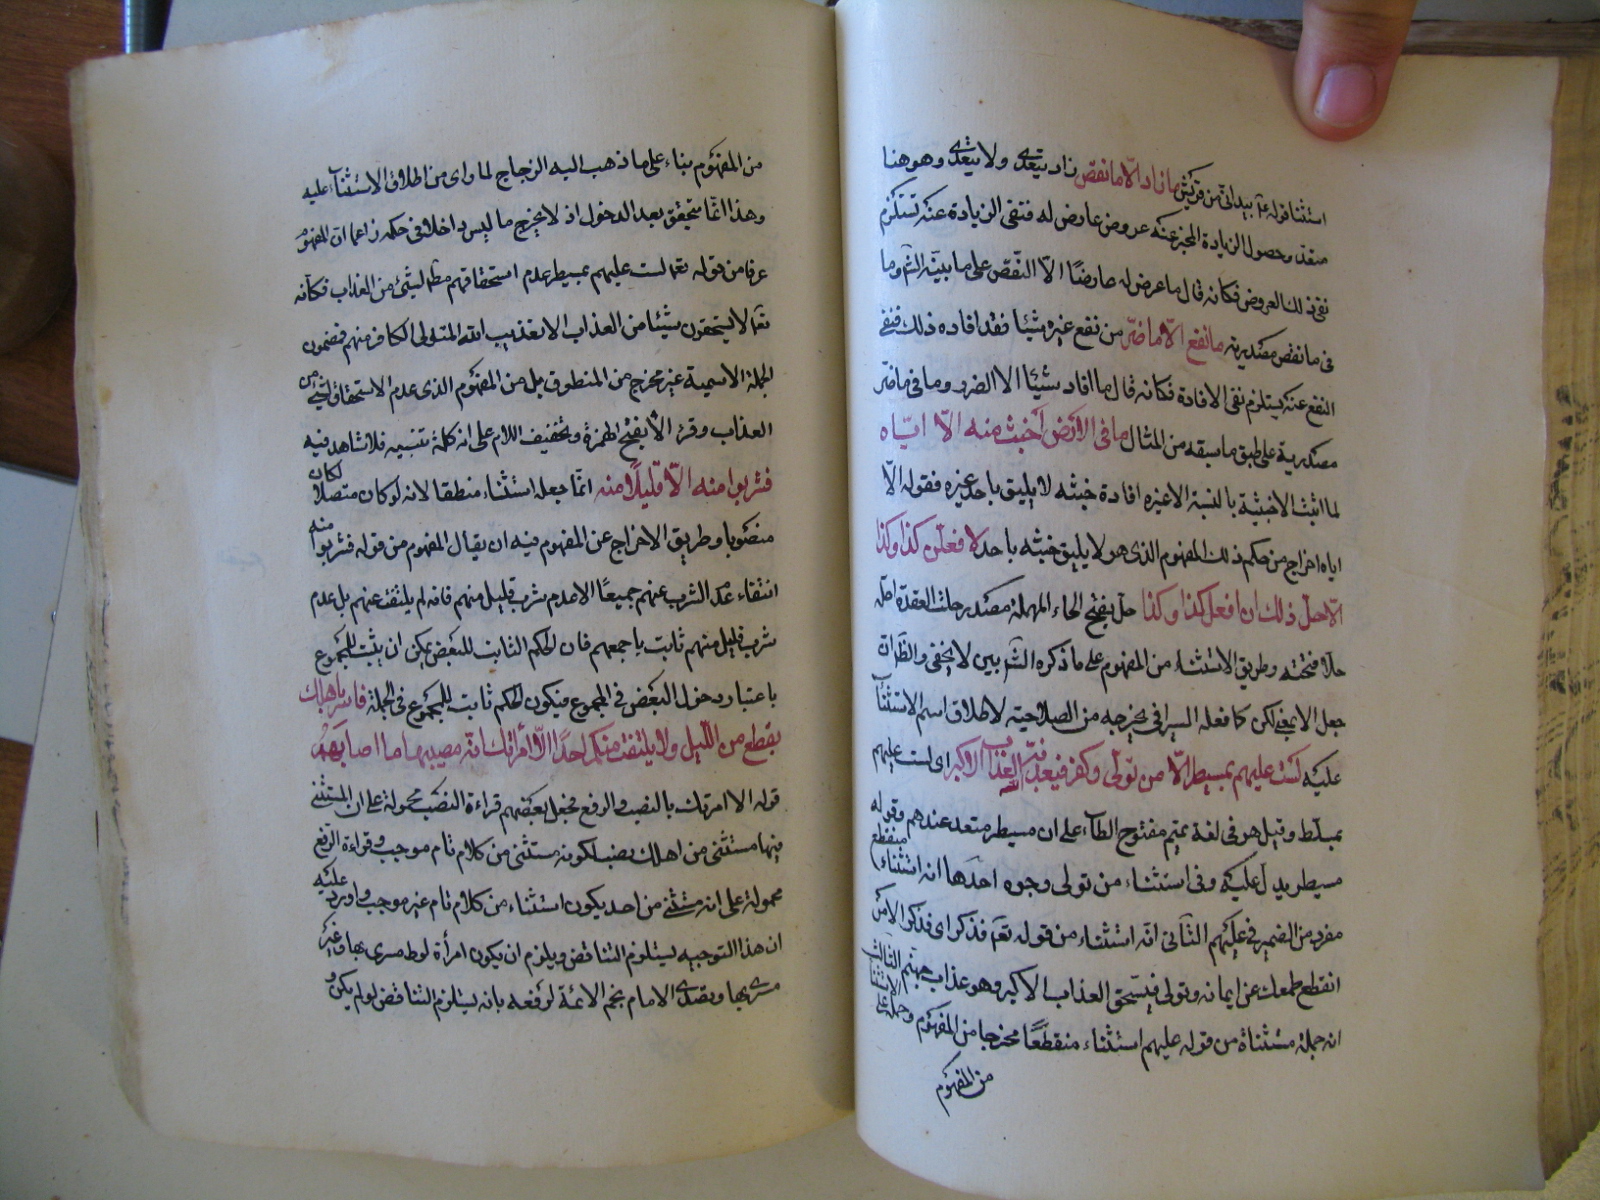 استثنا قوله عم بيد انى من قريش ما زاد الا ما نقص زاد يتعدى ولا يتعدى وهو هنا
متعد وحصول الزيادة المخبر عنه عروض عارض له فنفى الزيادة عنه تستلزم
نفى ذلك العروض فكانه قال ما عرض له عارضا الا النقص على ما بينه الشم وما
فى ما نقص مصدرية ما نفع الا ما ضر من نفع غيره شيئا فقد افاده ذلك فنفى
النفع عنه يستلزم نفى الافادة فكانه قال ما افاد شيئا الا الضر وما فى ما ضر
مصدرية على طبق ما سبقه من المثال ما فى الارض اخبث منه الا اياه
لما اثبت الاخبثية بالنسبة الا غيره افادة خبثه لا يليق باحد غيره فقوله الا
اياه اخراج من حكم ذلك المفهوم الذى هو لا يليق خبثه باحد لافعلن كذا وكذا
الا حل ذلك ان افعل كذا وكذا حل بفتح الحاء المهملة مصدر حللت العقدة احله
حلا فتحته وطريق الاستثناء من المفهوم على ما ذكره الشم بين لا يخفى والظ ان
جعل الا بمعنى لكن كما فعله السيرافى يخرجه من الصلاحية لاطلاق اسم الاستثناء
عليه لست عليهم بمسيطر الا من تولى وكفر فيعذبه الله العذاب الاكبر اى لست عليهم
بمسلط وقيل هو فى لغة تميم مفتوح الطاء على ان مسيطر متعد عندهم وقوله
مسيطر يدل عليه وفى استثناء من تولى وجوه احدها انه استثناء منقطع
مفرد من الضمير فى عليهم الثانى انه استثناء من قوله تعم فذكر اى فذكر الا من
انقطع طمعك عن ايمانه وتولى فيستحق العذاب الاكبر وهو عذاب جهنم الثالث
انه جملة مستثناة من قوله عليهم استثناء منقطعا مخرجا من المفهوم وحمله على الاستثناء
من المفهوم
من المفهوم بناء على ما ذهب اليه الزجاج لما راى من اطلاق الاستثناء عليه
وهذا انما يتحقق بعد الدخول اذ لا يخرج ما ليس داخلا فى حكمه زاعما ان المفهوم
عرفا من قوله تعم لست عليهم بمسيطر عدم استحقاقهم مظ لشئ من العذاب فكانه
تعم لا يستحقون شيئا من العذاب الا تعذيب الله المتولى الكافر منهم فمضمون
الجملة الاسمية غير مخرج من المنطوق بل من المفهوم الذى عدم الاستحقاق لشئ من
العذاب وقرئ الا بفتح الهمزة وتخفيف اللام على انه كلمة تنبيه فلا شاهد فيه
فشربوا منه الا قليلا منه انما جعله استثناء منقطعا لانه لو كان متصلا لكان
منصوبا وطريق الاخراج عن المفهوم فيه ان يقال المفهوم من قوله فشربوا منه
انتفاء عدم الشرب عنهم جميعا الا عدم شرب قليل منهم فانه لم يلتفت عنهم بل عدم
شرب قليل منهم ثابت باجمعهم فان الحكم الثابت للبعض يمكن ان يثبت للمجموع
باعتبار دخول البعض فى المجموع فيكون الحكم ثابت للمجموع فى الجملة فاسر باهلك
بقطع من الليل ولا يلتفت منكم احد الا امرأتك انه مصيبها ما اصابهم
قوله الا امرتك بالنصب والرفع فجعل بعضهم قراءة النصب محمولة على ان المستثنى
فيها مستثنى من اهلك بنصب لكونه مستثنى من كلام تام موجب وقراءة الرفع
محمولة على انه مستثنى من احد يكون استثناء من كلام تام غير موجب واورد عليه
ان هذا التوجيه يستلزم التناقض ويلزم ان يكون امرأة لوط مسرى بها وغير
مسرى بها وتصدى الامام نجم الائمة لرفعه بانه يستلزم التناقض لو لم يكن